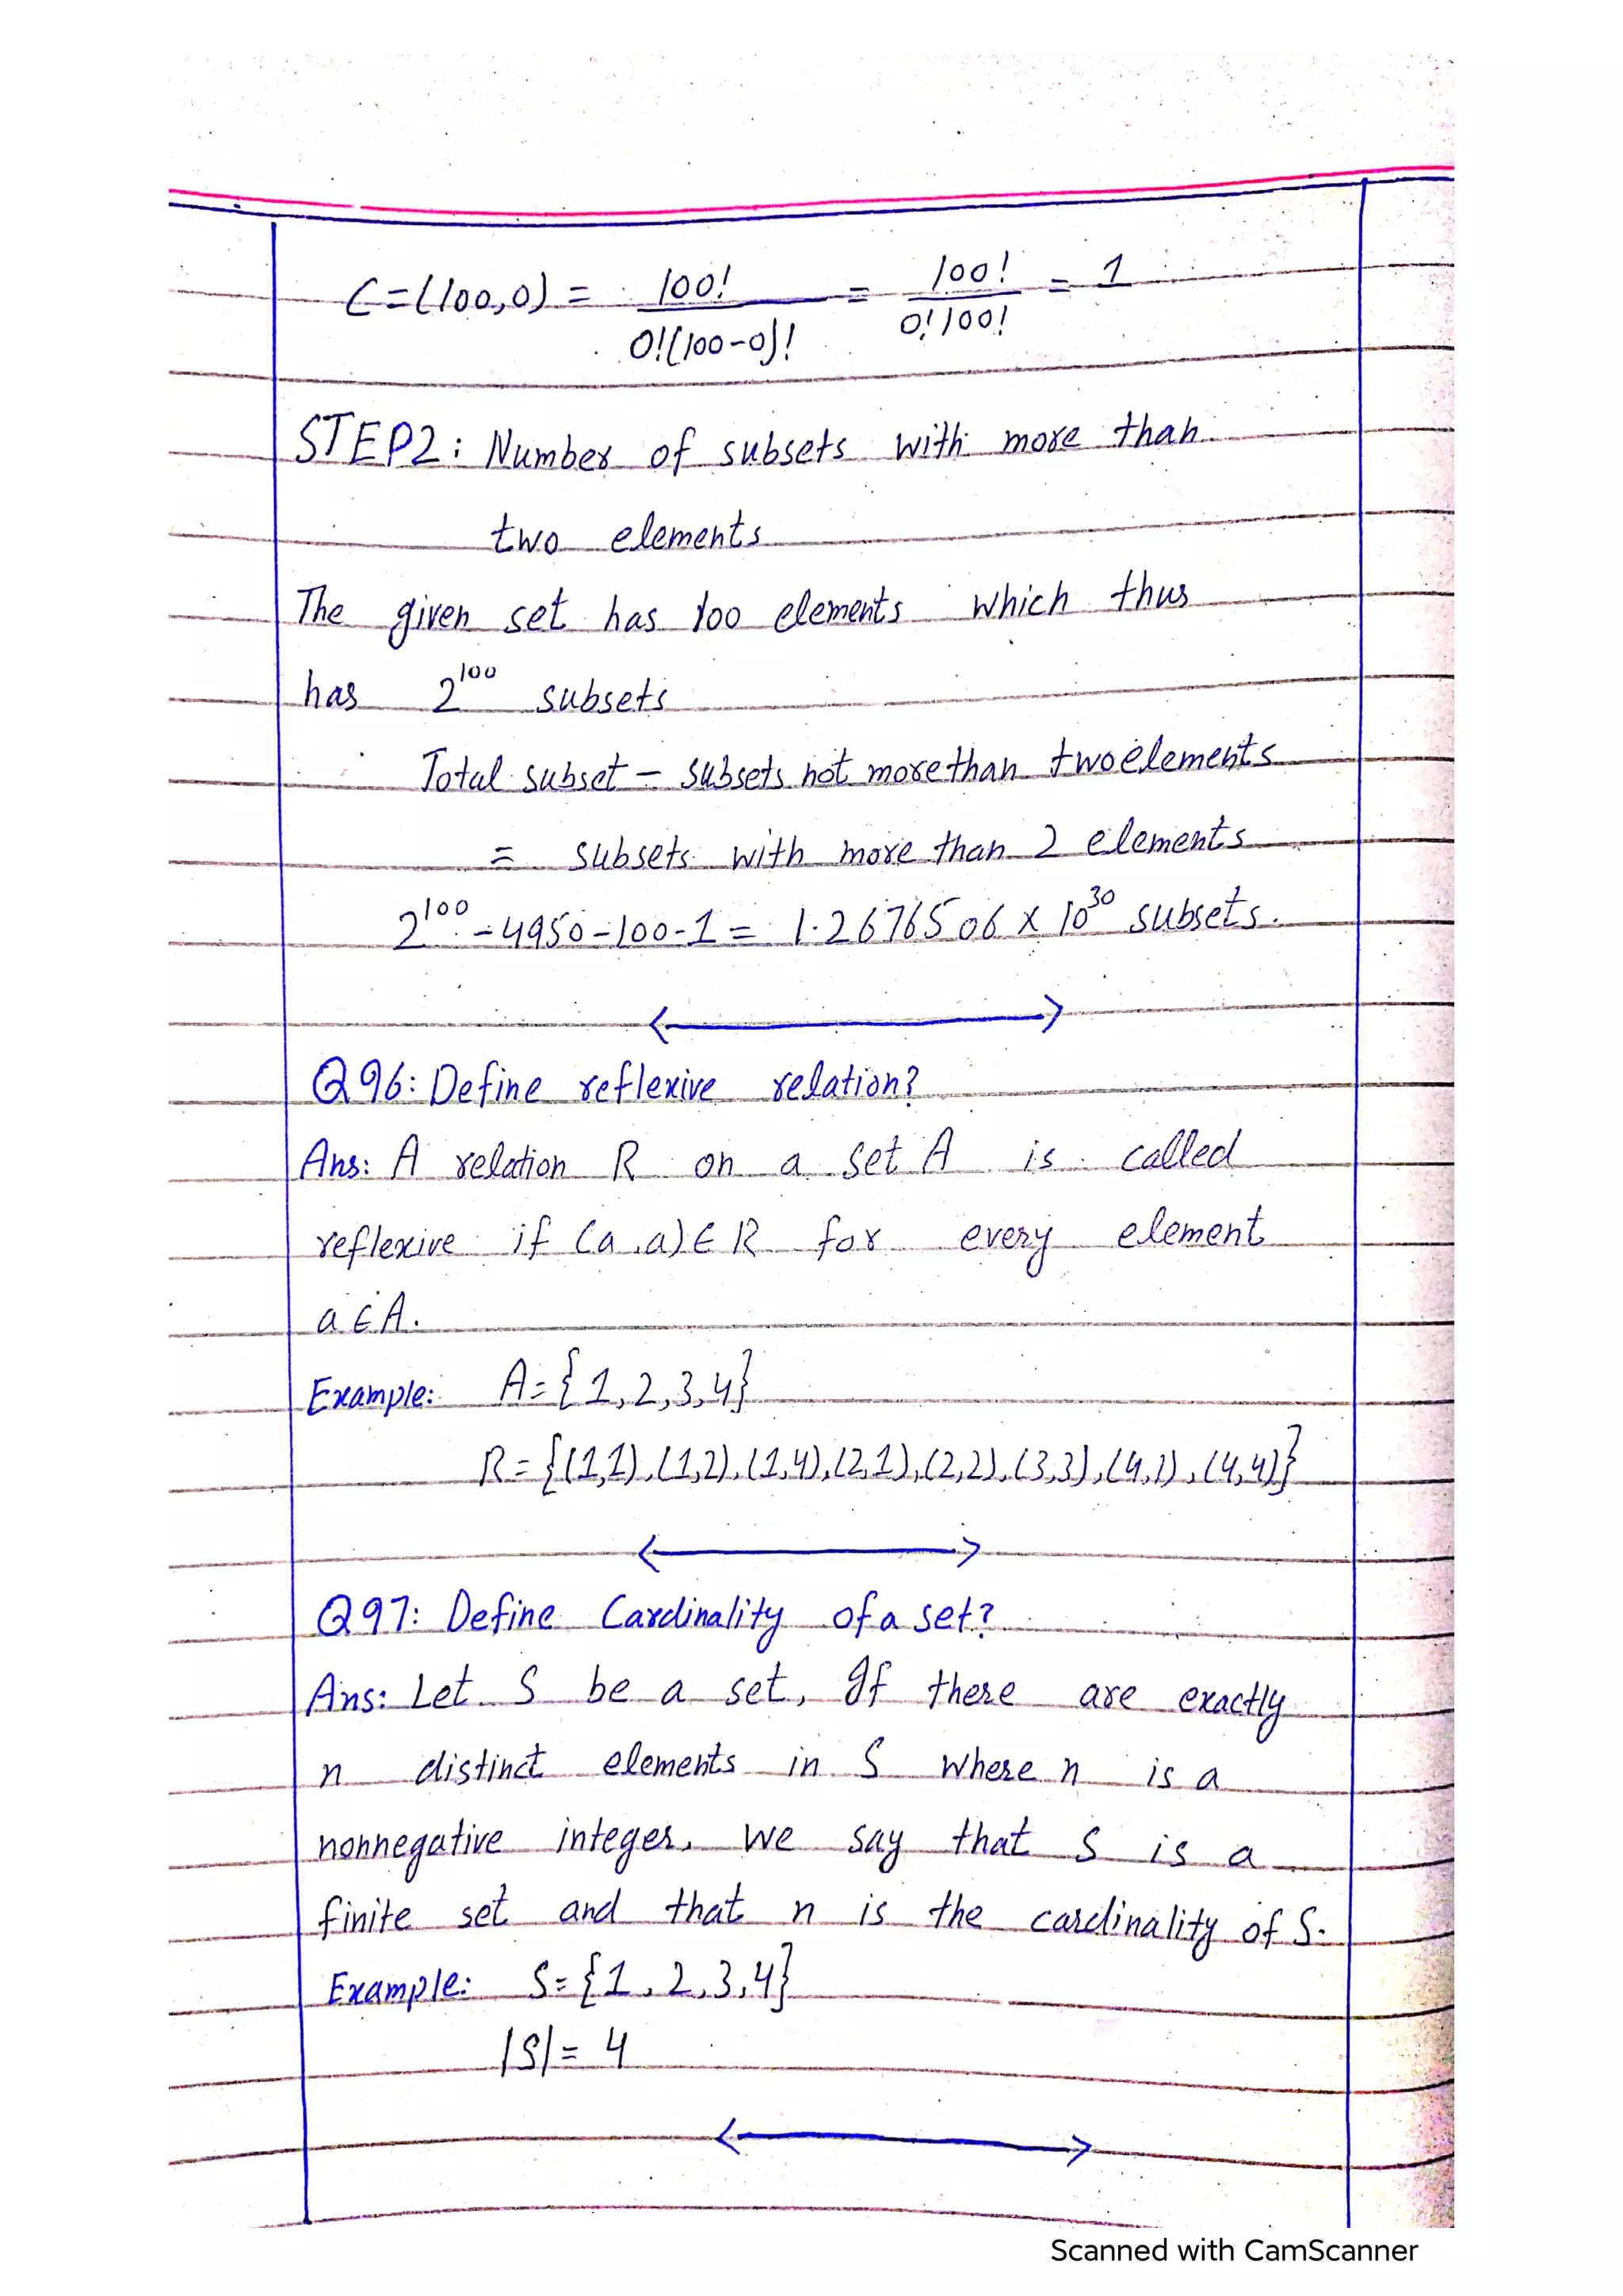 C=(100,0) = 100! / 0!(100-0)! = 100! / 0!100! = 1
STEP2: Number of subsets with more than
two elements
The given set has 100 elements which thus
has 2^100 subsets
Total subset - subsets not more than two elements
= subsets with more than 2 elements
2^100 - 4950 - 100 - 1 = 1.2676506 x 10^30 subsets.
Q96: Define reflexive relation?
Ans: A relation R on a set A is called
reflexive if (a,a)∈R for every element
a∈A.
Example: A={1,2,3,4}
R={(1,1),(1,2),(1,4),(2,1),(2,2),(3,3),(4,1),(4,4)}
Q97: Define Cardinality of a set?
Ans: Let S be a set, If there are exactly
n distinct elements in S where n is a
nonnegative integer, we say that S is a
finite set and that n is the cardinality of S.
Example: S={1,2,3,4}
|S|= 4
Scanned with CamScanner